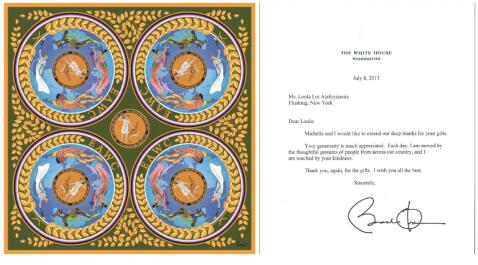 THE WHITE HOUSE
WASHINGTON
July 8, 2013
Ms. Loula Loi Alafoyiannis
Flushing, New York
Dear Loula:
Michelle and I would like to extend our deep thanks for your gifts.
Your generosity is much appreciated. Each day, I am moved by
the thoughtful gestures of people from across our country, and I
am touched by your kindness.
Thank you, again, for the gifts. I wish you all the best.
Sincerely,
EAWC
EAWC